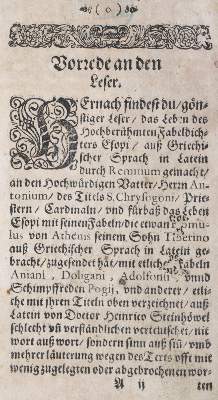 ( o )
Vorrede an den
Leser.
HErnach findest du / gön-
stiger Leser / das Leben des
Hochberühmten Fabeldich-
ters Esopi / auß Griechi-
scher Sprach in Latein
durch Remnium gemacht /
an den Hochwürdigen Vatter / Herrn An-
tonium / des Titels S. Chrysogoni / Prie-
stern / Cardinaln / und fürbaß das Leben
Esopi mit seinen Fabeln / die etwan Romu-
lus von Athens seinem Sohn Tiberino
auß Griechischer Sprach in Latein ge-
bracht / zugesendet hat / mit etlichen Fabeln
Aniani, Doligani, Adolfonsi und
und Schimpffreden Pogij, und anderer / etli-
che mit ihren Titeln oben verzeichnet / auß
Latein von Doctor Heinrico Steinhöwel
schlecht uñ verständlichen verteutschet / nit
wort auß wort / sondern sinn auß sin̄ / umb
mehrer läuterung wegen des Texts offt mit
wenig zugelegten oder abgebrochenen wor-
A ij ten